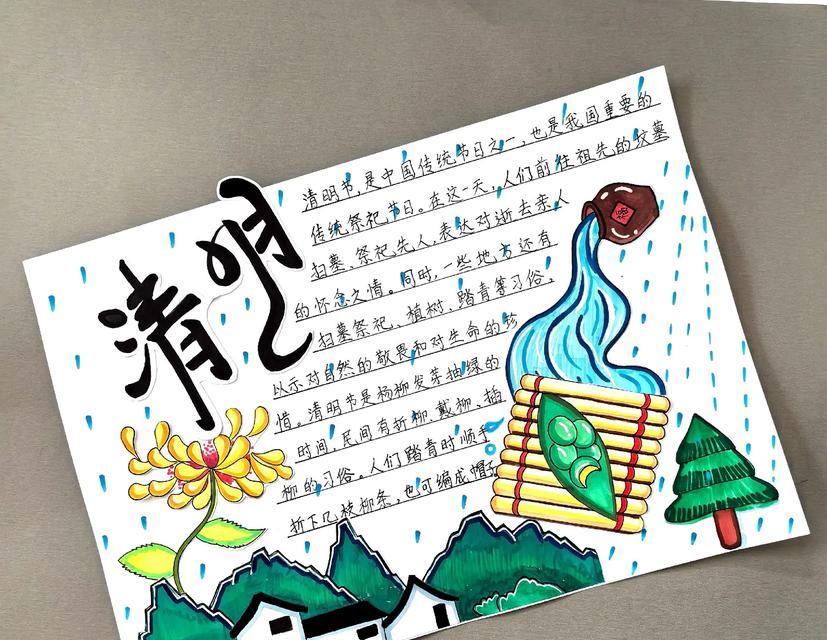 清明
清明节,是中国传统节日之一,也是我国重要的
传统祭祀节日。在这一天,人们前往祖先的坟墓
扫墓、祭祀先人,表达对逝去亲人
的怀念之情。同时,一些地方还有
扫墓祭祀、植树、踏青等习俗,
以示对自然的敬畏和对生命的珍
惜。清明节是杨柳发芽抽绿的
时间,民间有折柳、戴柳、插
柳的习俗。人们踏青时顺手
折下几枝柳条,也可编成帽子